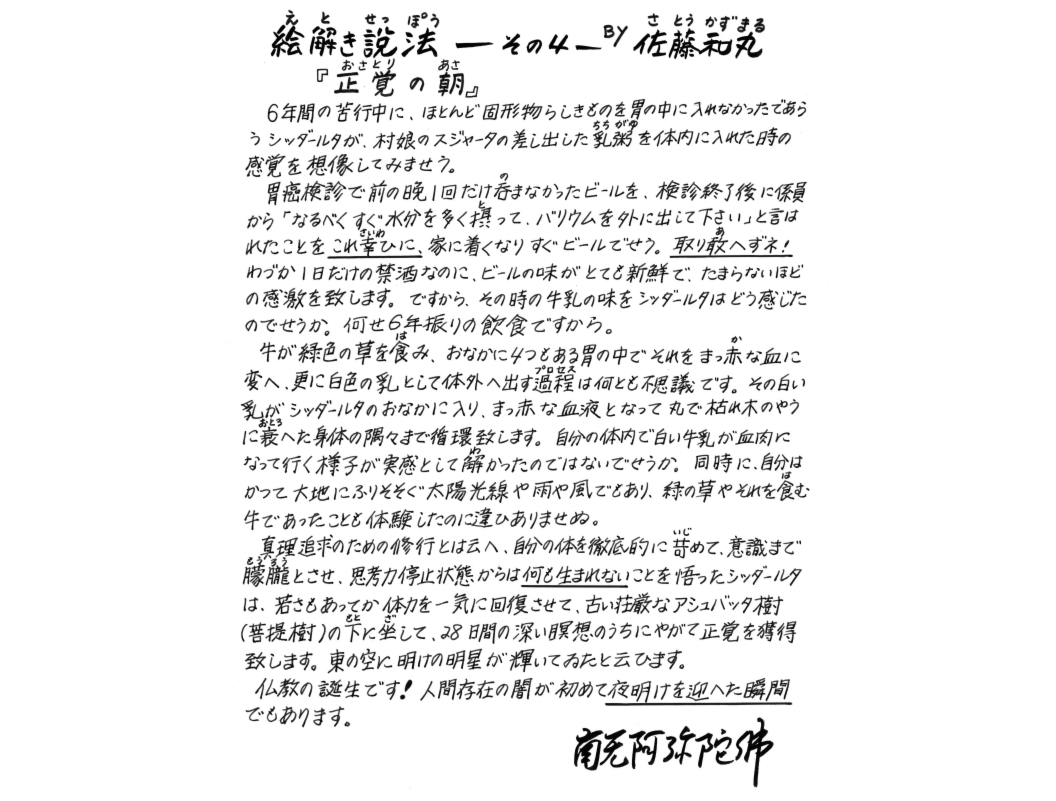 絵解き説法 ―その4― BY 佐藤和丸
『正覚の朝』
6年間の苦行中に、ほとんど固形物らしきものを胃の中に入れなかったであら
うシッダールタが、村娘のスジャータの差し出した乳粥を体内に入れた時の
感覚を想像してみませう。
胃癌検診で前の晩1回だけ呑まなかったビールを、検診終了後に係員
から「なるべくすぐ水分を多く摂って、バリウムを外に出して下さい」と言は
れたことをこれ幸ひに、家に着くなりすぐビールでせう。取り敢へずネ!
わづか1日だけの禁酒なのに、ビールの味がとても新鮮で、たまらないほど
の感激を致します。ですから、その時の牛乳の味をシッダールタはどう感じた
のでせうか。何せ6年振りの飲食ですから。
牛が緑色の草を食み、おなかに4つもある胃の中でそれをまっ赤な血に
変へ、更に白色の乳として体外へ出す過程は何とも不思議です。その白い
乳がシッダールタのおなかに入り、まっ赤な血液となって丸で枯れ木のやう
に衰へた身体の隅々まで循環致します。自分の体内で白い牛乳が血肉に
なって行く様子が実感として解かったのではないでせうか。同時に、自分は
かつて大地にふりそそぐ太陽光線や雨や風でもあり、緑の草やそれを食む
牛であったことも体験したのに違ひありませぬ。
真理追求のための修行とは云へ、自分の体を徹底的に苛めて、意識まで
朦朧とさせ、思考力停止状態からは何も生まれないことを悟ったシッダールタ
は、若さもあってか体力を一気に回復させて、古い荘厳なアシュバッタ樹
(菩提樹)の下に坐して、28日間の深い瞑想のうちにやがて正覚を獲得
致します。東の空に明けの明星が輝いてゐたと云ひます。
仏教の誕生です!人間存在の闇が初めて夜明けを迎へた瞬間
でもあります。
南无阿弥陀佛